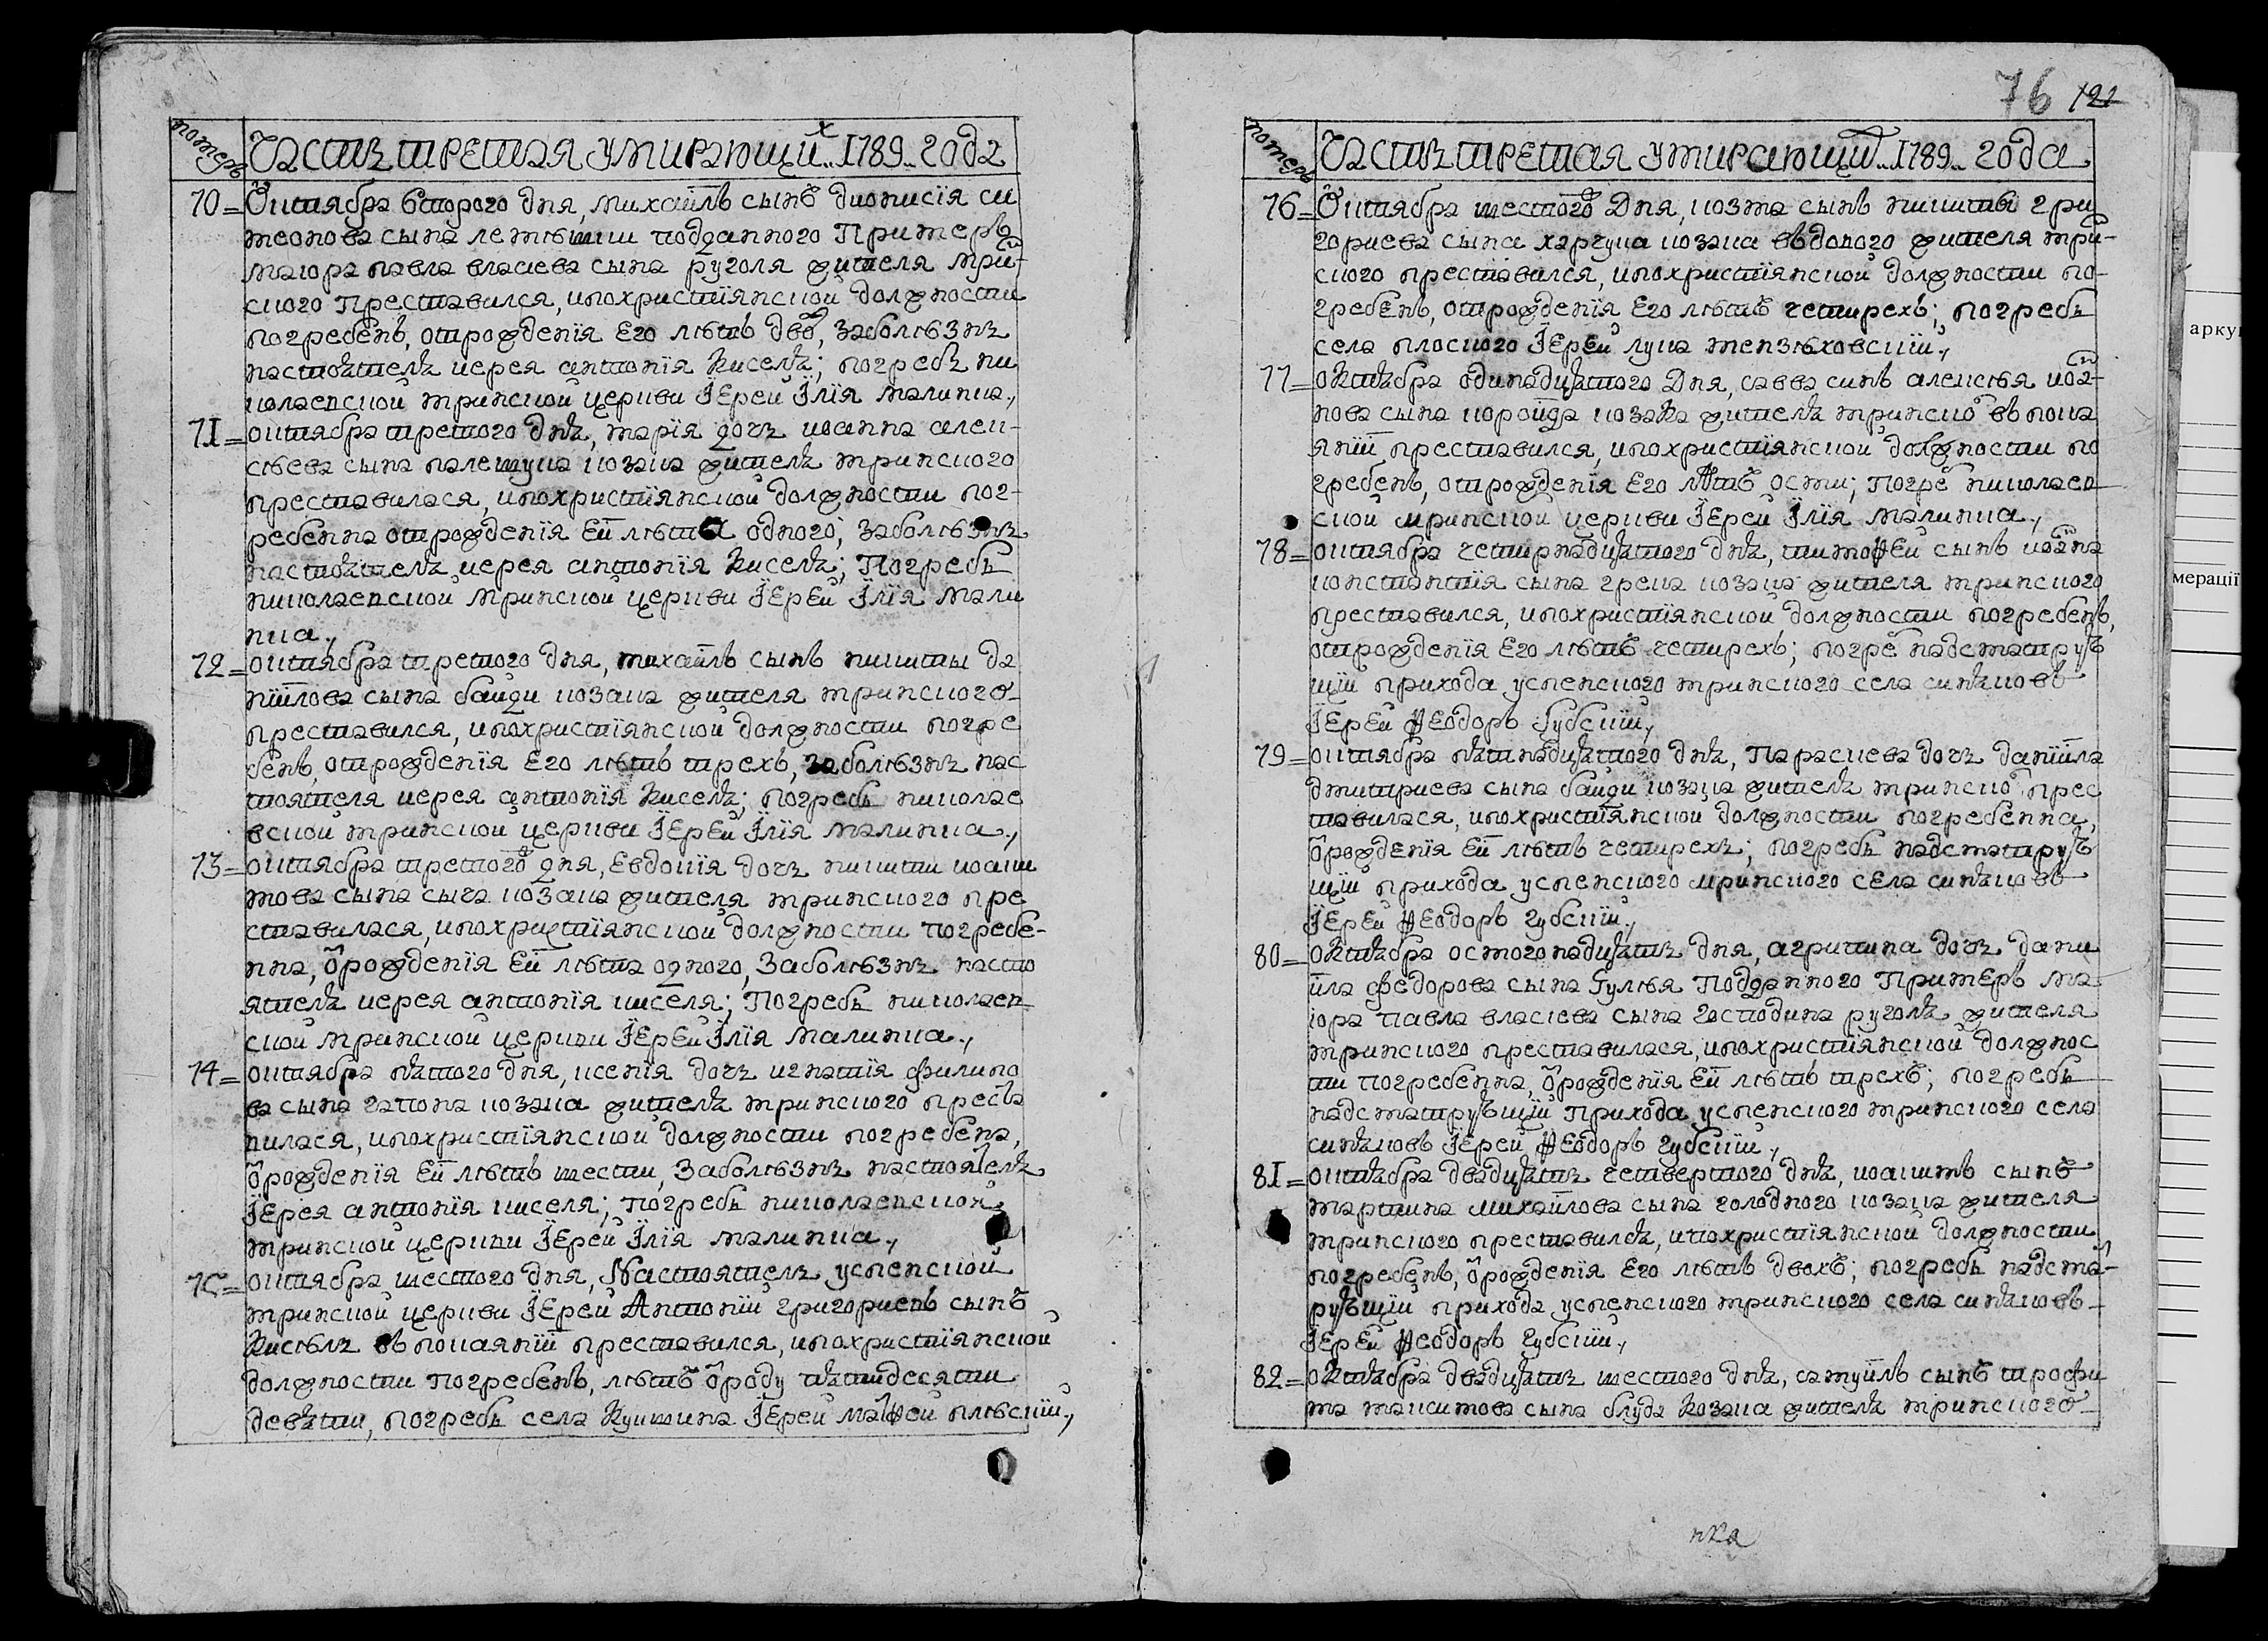 76 121
номеръ
Часть третая умирающихъ 1789 года
70 = Октября второго дня, михаилъ сынъ дионисія си
меонова сына лемѣшки подданного Примеръ
маіора павла власіева сына руголя жителя мрин
ского Преставился, ипохристіянской должности
погребенъ, отрождения Его лѣтъ двохъ, заболѣзнь
настоятеля иерея антонія Киселя; погребъ ни
колаевской мринской церкви Іерей Ілія малинка.,
71 = октября третого дня, марія дочь иоанна алек-
сѣева сына палешука козака жителя мринского
преставилася, ипохристіянской должности пог-
ребенна отрожденія Ей лѣта одного; заболѣзнь
настоятеля иерея антонія Киселя; Погребъ
николаевской мринской церкви Іерей Ілія мали
нка.,
72 = октября третого дня, михаилъ сынъ никиты да
ніилова сына байди козака жителя мринского
преставился, ипохристіянской должности погре
бенъ, отрожденія Его лѣтъ трехъ, заболѣзнь нас
тоятеля иерея антонія Киселя; погребъ николае
вской мринской церкви Іерей Ілія малинка.,
73 = октября третого дня, Евдокія дочь никити иоаки
мова сына сыча козака жителя мринского пре
ставилася, ипохристіянской должности погребе-
нна, ѿрожденія Ей лѣта одного, Заболѣзнь насто
ятеля иерея антонія киселя; Погребъ николаев-
ской мринской церкви Іерей Ілія малинка.,
74 = октября пятого дня, ксенія дочь игнатія филипо
ва сына гапона козака жителя мринского преста
вилася, ипохристіянской должности погребена,
ѿрожденія Ей лѣтъ шести, Заболѣзнь настоятеля
Іерея антонія киселя; погребъ николаевской
мринской церкви Іерей Ілія малинка.,
75 = октября шестого дня, Настоятель успенской
мринской церкви Іерей Антоній григориевъ сынъ
Кисѣль въ покаяніи преставился, ипохристіянской
должности погребенъ, лѣтъ ѿроду пятидесяти
девяти, погребъ села Кукшина Іерей маѳей плѣскій.,
номеръ
Часть третая умирающихъ 1789 года
76 = Октября шестого Дня, козма сынъ никиты гри
гориева сына харчука козака вѣдоного жителя мрин-
ского преставился, ипохристіянской должности по-
гребенъ, отрожденія Его лѣтъ четирехъ; погребъ
села плоского Іерей лука мензѣховскій.,
77 = октября одинадцятого Дня, савва синъ алексѣя иоан-
нова сына коройда козака жителя мринского въ пока
яніи преставился, ипохристіянской должности по
гребенъ, отрожденія Его лѣтъ осми; Погребъ николаев
ской мринской церкви Іерей Ілія малинка.,
78 = октября четирнадцятого дня, тимоѳей сынъ иоанна
константія сына грека козака жителя мринского
преставился, ипохристіянской должности погребенъ,
отрожденія Его лѣтъ четирехъ; погребъ надсматрую
щій прихода успенского мринского села синяковъ
Іерей Ѳеодоръ Губскій.,
79 = октября пятнадцятого дня, Параскева дочь даніила
дмитриева сына байди козака жителя мринского прес
тавилася, ипохристіянской должности погребенна,
ѿрожденія Ей лѣтъ четирехъ; погребъ надсматрую
щій прихода успенского мринского села синяковъ
Іерей Ѳеодоръ губскій.,
80 = октября осмогонадцять дня, агрипина дочь дани
ила федорова сына Гулѣя Подданного Примеръ ма
іора павла власіева сына господина руголя жителя
мринского преставилася, ипохристіянской должнос
ти погребенна, ѿрожденія Ей лѣтъ трехъ; погребъ
надсматрующій Прихода успенского мринского села
синяковъ Іерей Ѳеодоръ губскій.,
81 = октября двадцять четвертого дня, иоакимъ сынъ
мартина михайлова сына голодного козака жителя
мринского преставился, ипохристіянской должности
погребенъ, ѿрожденія Его лѣтъ двохъ; погребъ надсмат-
рующій прихода успенского мринского села синяковъ
Іерей Ѳеодоръ губскій.,
82 = октября двадцять шестого дня, самуилъ сынъ трофи
ма максимова сына блуда Козака жителя мринского
рка
арку
мерації